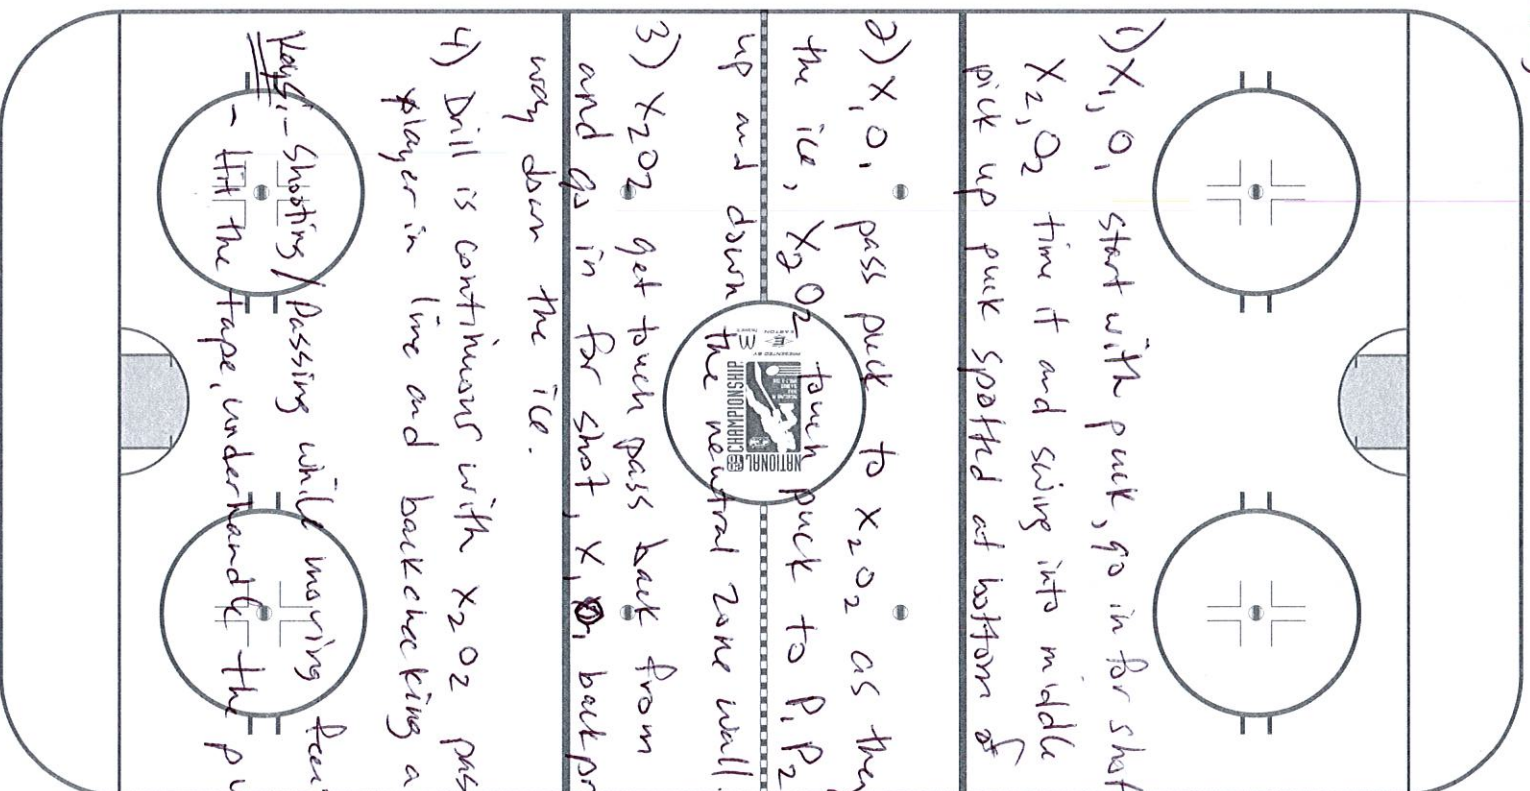 1) X1, O1 start with puck, go in for shot
X2, O2 time it and swing into middle
pick up puck spotted at bottom of
2) X1 O1 pass puck to X2 O2 as they
the ice, X2 O2 touch puck to P1 P2
up and down the neutral zone wall.
3) X2 O2 get touch pass back from
and go in for shot, X1 O1 back pr
way down the ice.
4) Drill is continuous with X2 O2 pas
player in line and backchecking a
Keys: - Shooting/Passing while moving feet
- Hit the tape, underhandle the pu
NATIONAL
CHAMPIONSHIP
PRESENTED BY
EASTON